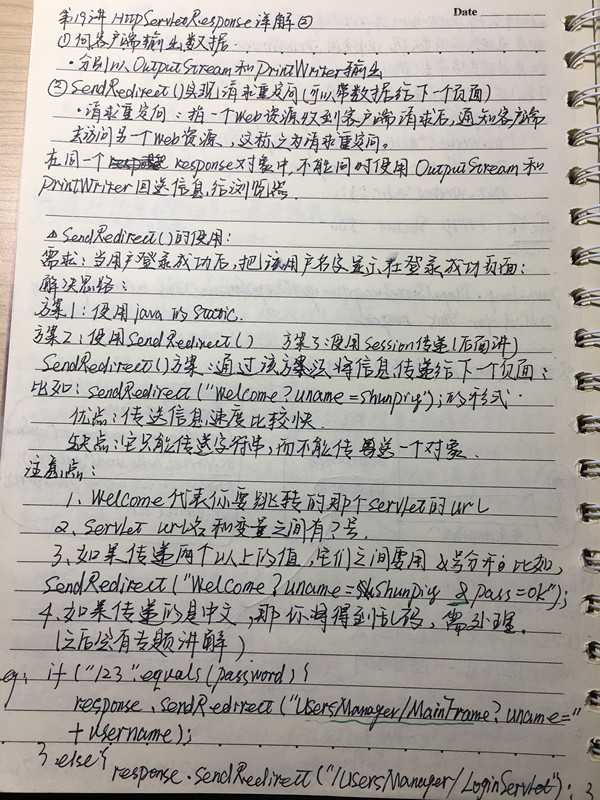 Date
第19讲 HttpServletResponse详解②
①向客户端输出数据.
·分别以OutputStream和PrintWriter输出
②SendRedirect()实现请求重定向(可以带数据给下一个页面)
·请求重定向:指一个Web资源收到客户端请求后,通知客户端
去访问另一个Web资源,这称之为请求重定向。
在同一个 response对象中,不能同时使用OutputStream和
PrintWriter回送信息给浏览器.
△SendRedirect()的使用:
需求:当用户登录成功后,把该用户名字显示在登录成功页面:
解决思路:
方案1:使用java的static.
方案2:使用SendRedirect() 方案3:使用Session传递(后面讲)
SendRedirect()方案:通过该方案将信息传递给下一个页面:
比如:sendRedirect("Welcome?uname=shunping");的形式.
优点:传送信息速度比较快.
缺点:它只能传送字符串,而不能传送一个对象.
注意点:
1、Welcome代表你要跳转的那个servlet的url
2、Servlet url名和变量之间有?号.
3、如果传递两个以上的值,它们之间需用&号分开.比如,
SendRedirect("Welcome?uname=Shunping&pass=ok");
4、如果传递的是中文,那你将得到乱码,需处理.
(之后会有专题讲解)
eg: if("123".equals(password){
response.sendRedirect("UsersManager/MainFrame?uname="
+username);
}else{
response.sendRedirect("/UsersManager/LoginServlet"); }